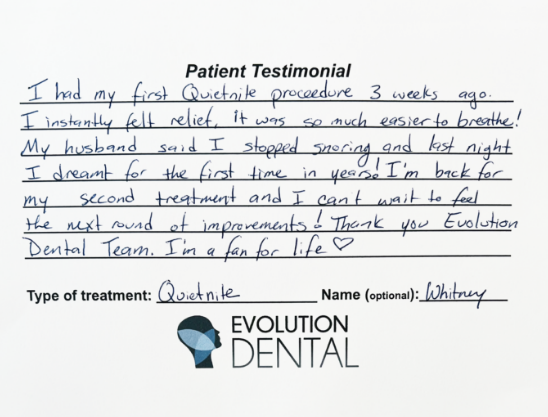 Patient Testimonial
I had my first Quietnite proceedure 3 weeks ago.
I instantly felt relief, it was so much easier to breathe!
My husband said I stopped snoring and last night
I dreamt for the first time in years! I'm back for
my second treatment and I cant wait to feel
the next round of improvements! Thank you Evolution
Dental Team. I'm a fan for life ♡
Type of treatment: Quietnite Name (optional): Whitney
EVOLUTION
DENTAL